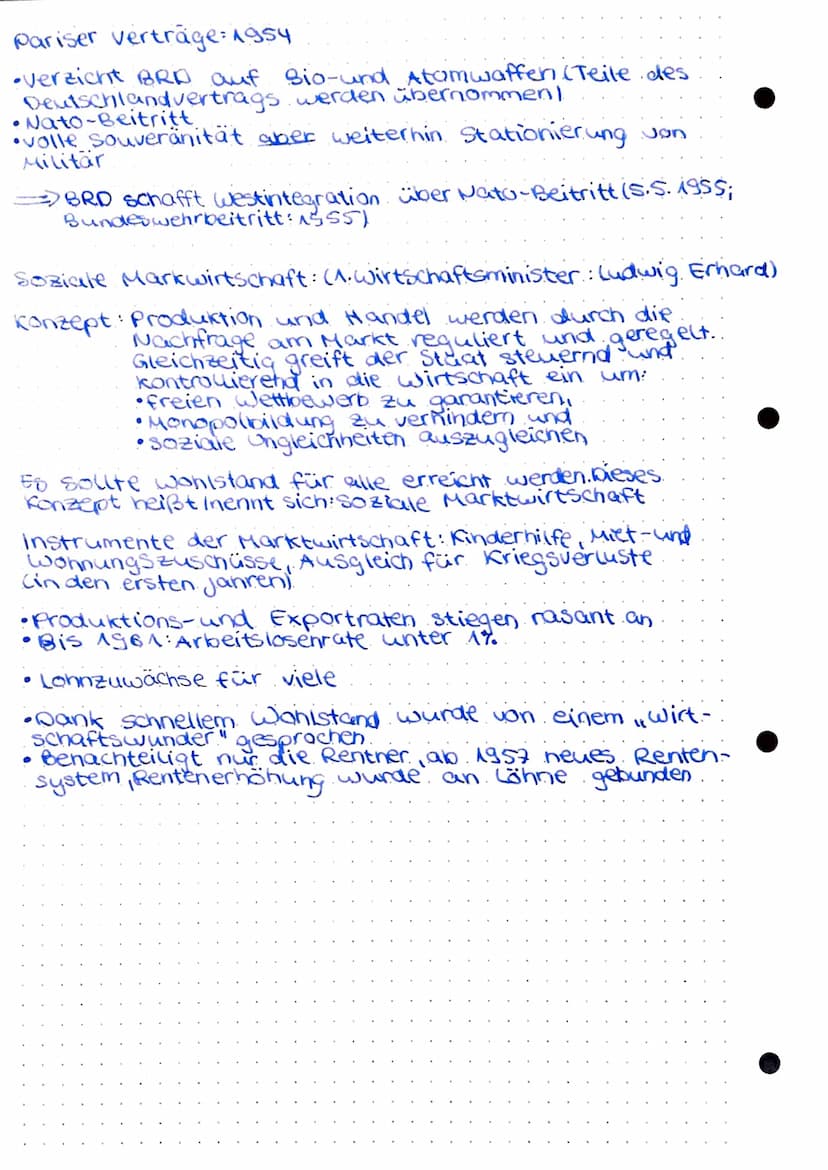 Pariser Verträge: 1954
• Verzicht BRD auf Bio-und Atomwaffen (Teile des
Deutschlandvertrags werden übernommen)
• Nato-Beitritt
• volle Souveränität aber weiterhin Stationierung von
Militär
=> BRD schafft Westintegration über Nato-Beitritt (5.5.1955;
Bundeswehrbeitritt: 1955)
Soziale Markwirtschaft: (1. Wirtschaftsminister: Ludwig Erhard)
Konzept: Produktion und Handel werden durch die
Nachfrage am Markt reguliert und geregelt.
Gleichzeitig greift der Staat steuernd und
kontrollierend in die Wirtschaft ein um:
• freien Wettbewerb zu garantieren,
• Monopolbildung zu verhindern und
• soziale Ungleichheiten auszugleichen
Es sollte Wohlstand für alle erreicht werden. Dieses
Konzept heißt/nennt sich: Soziale Marktwirtschaft
Instrumente der Marktwirtschaft: Kinderhilfe, Miet-und
Wohnungszuschüsse, Ausgleich für Kriegsverluste
(in den ersten Jahren)
• Produktions-und Exportraten stiegen rasant an
• Bis 1961: Arbeitslosenrate unter 1%
• Lohnzuwächse für viele
• Dank schnellem Wohlstand wurde von einem „Wirt-
schaftswunder" gesprochen
• Benachteiligt nur die Rentner, ab 1957 neues Renten-
system, Rentenerhöhung wurde an Löhne gebunden